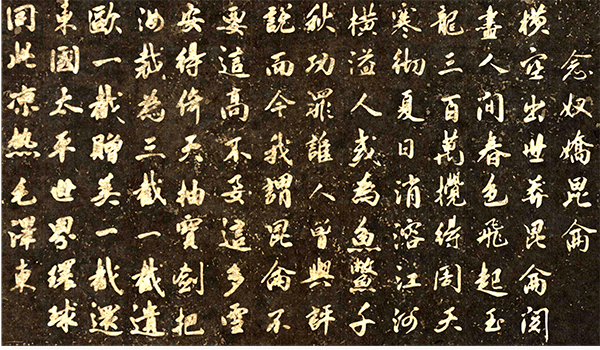 念奴嬌昆侖
橫空出世莽昆侖閱
盡人間春色飛起玉
龍三百萬攪得周天
寒徹夏日消溶江河
橫溢人或為魚鱉千
秋功罪誰人曾與評
說而今我謂昆侖不
要這高不要這多雪
安得倚天抽寶劍把
汝裁為三截一截遺
歐一截贈美一截還
東國太平世界環球
同此凉熱毛澤東